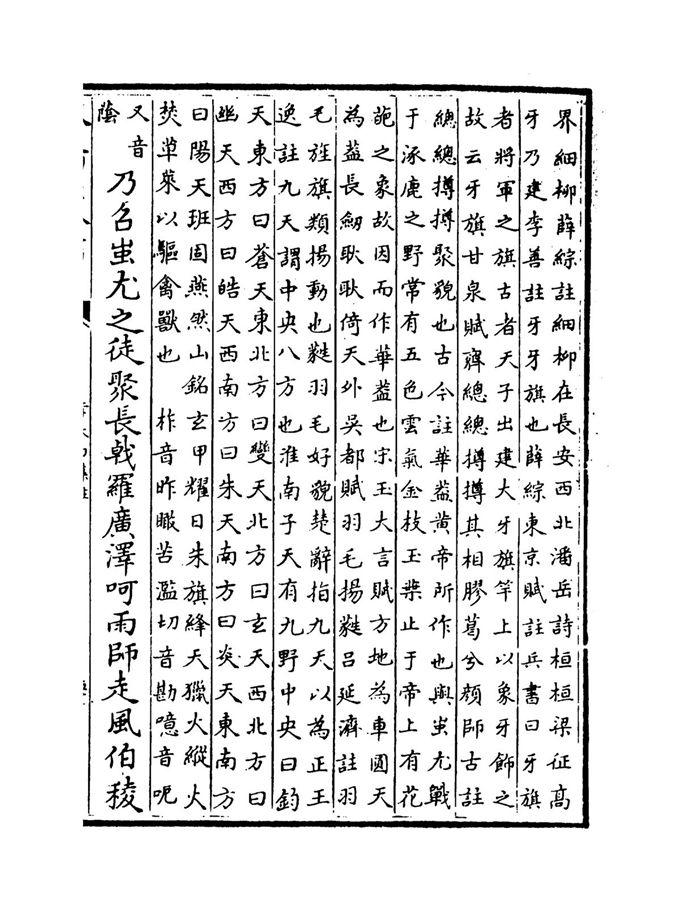 界細柳薛綜註細柳在長安西北潘岳詩桓桓梁征高
牙乃建李善註牙牙旗也薛綜東京賦註兵書曰牙旗
者將軍之旗古者天子出建大牙旗竿上以象牙飾之
故云牙旗甘泉賦齊總總撙撙其相膠葛兮顏師古註
總總撙撙聚貌也古今註華葢黄帝所作也與蚩尤戰
于涿鹿之野常有五色雲氣金枝玉葉止于帝上有花
葩之象故因而作華葢也宋玉大言賦方地為車圓天
為葢長劒耿耿倚天外吳都賦羽毛揚蕤吕延濟註羽
毛旌旗類揚動也蕤羽毛好貌楚辭指九天以為正王
逸註九天謂中央八方也淮南子天有九野中央曰鈞
天東方曰蒼天東北方曰變天北方曰玄天西北方曰
幽天西方曰皓天西南方曰朱天南方曰炎天東南方
曰陽天班固燕然山銘玄甲耀日朱旗絳天獵火縱火
焚草萊以驅禽獸也 柞音昨瞰苦濫切音勘噫音呃
又音
蔭
乃召蚩尤之徒聚長戟羅廣澤呵雨師走風伯稜